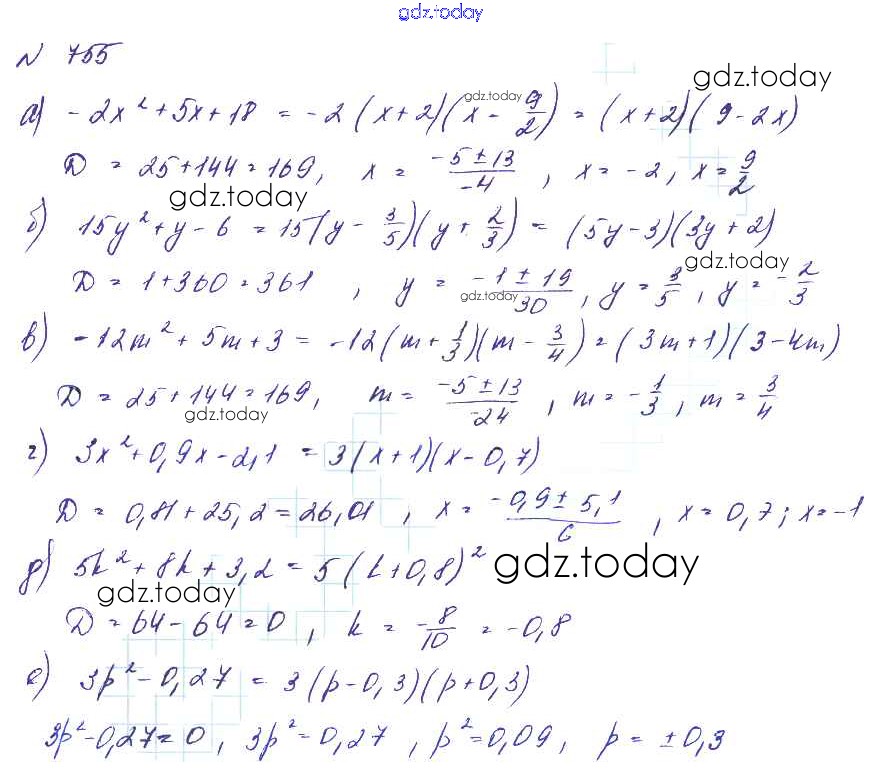 gdz.today
N 755
gdz.today
а) -2x² + 5x + 18 = -2(x+2)(x - 9/2) = (x+2)(9-2x)
gdz.today
D = 25+144=169, x = (-5±13)/(-4), x = -2, x = 9/2
gdz.today
б) 15y² + y - 6 = 15(y - 3/5)(y + 2/3) = (5y-3)(3y+2)
gdz.today
D = 1+360=361, y = (-1±19)/30, y = 3/5, y = -2/3
gdz.today
в) -12m² + 5m + 3 = -12(m + 1/3)(m - 3/4) = (3m+1)(3-4m)
D = 25+144=169, m = (-5±13)/(-24), m = -1/3, m = 3/4
gdz.today
г) 3x² + 0,9x - 2,1 = 3(x+1)(x-0,7)
D = 0,81+25,2=26,01, x = (-0,9±5,1)/6, x = 0,7; x = -1
д) 5k² + 8k + 3,2 = 5(k+0,8)²
gdz.today
gdz.today
D = 64-64=0, k = -8/10 = -0,8
е) 3p² - 0,27 = 3(p-0,3)(p+0,3)
3p²-0,27=0, 3p²=0,27, p²=0,09, p = ±0,3